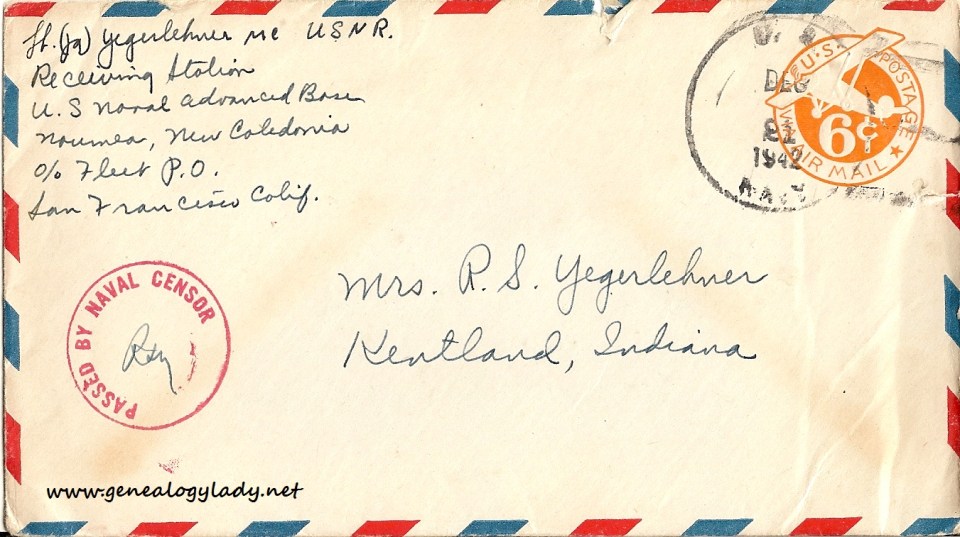 Lt. (jg) Yegerlehner MC USNR.
Receiving Station
U.S Naval Advanced Base
Noumea, New Caledonia
c/o Fleet P.O.
San Francisco Calif.
U.S. POSTAGE
6¢
VIA AIR MAIL
U. S.
DEC
31
1942
NAVY
Mrs. R. S. Yegerlehner
Kentland, Indiana
PASSED BY NAVAL CENSOR
RSY
www.genealogylady.net